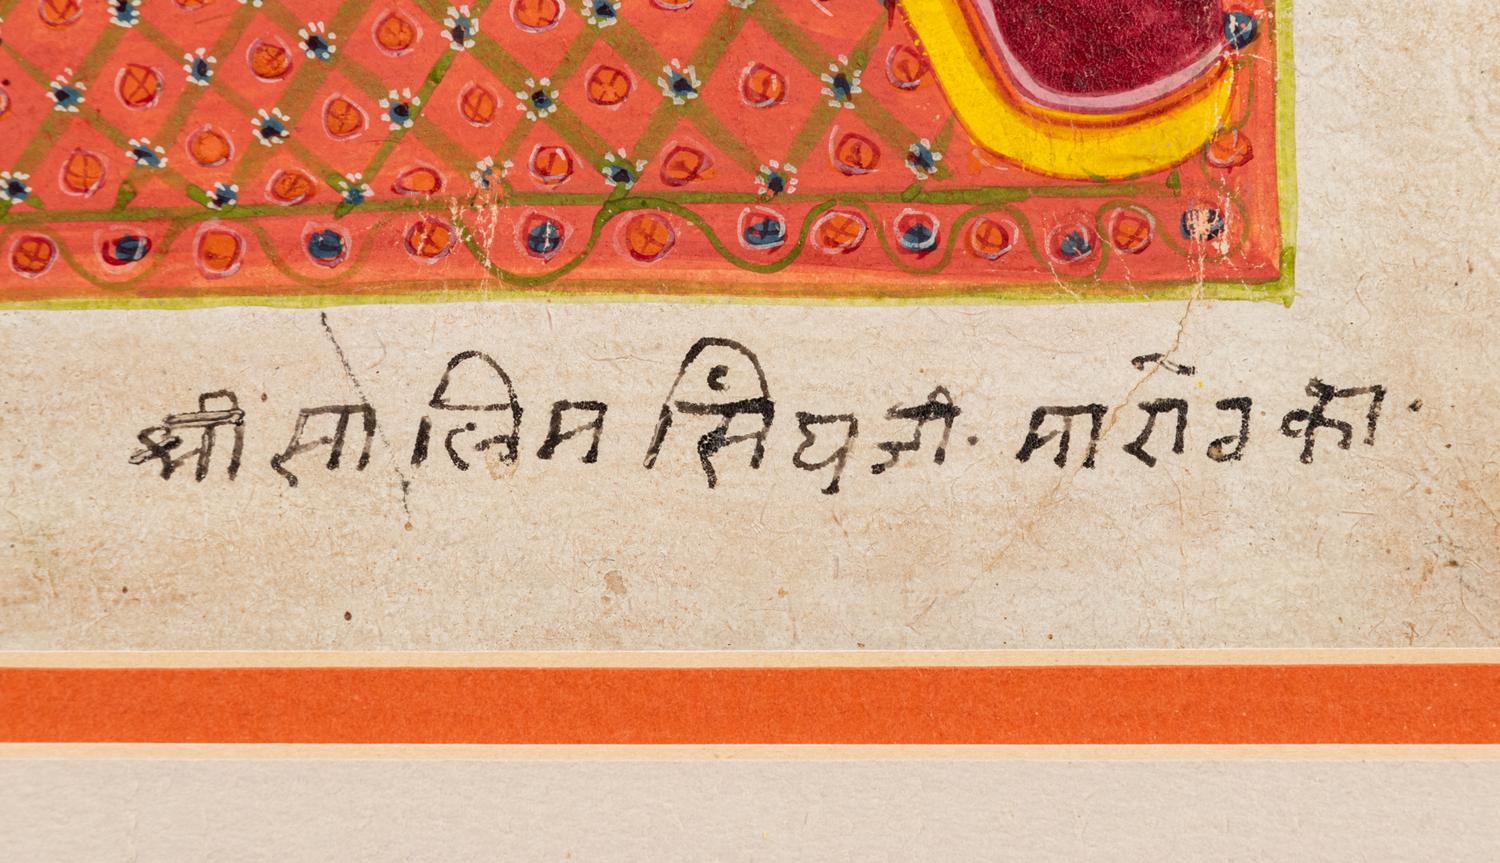 श्री सालिम सिंघजी. मारोठ का.